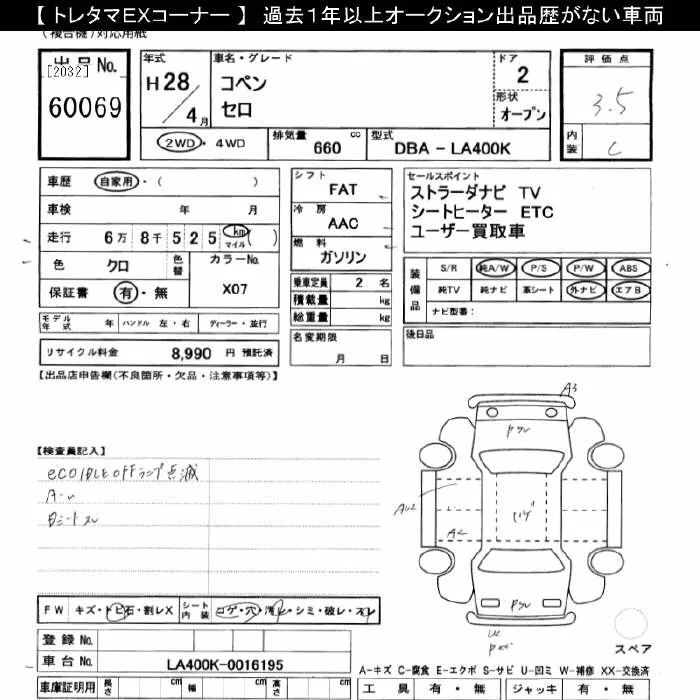 【 トレタマEXコーナー 】 過去1年以上オークション出品歴がない車両
(複合機)対応用紙
出品No.
[2032]
60069
年式
H28/4月
車名・グレード
コペン
セロ
ドア
2
形状
オープン
評価点
3.5
内装
C
2WD・4WD
排気量 660 cc
型式 DBA - LA400K
車歴 自家用・( )
車検 年 月
走行 6万 8千 5 2 5 km マイル ( )
色 クロ
色替
カラーNo.
X07
保証書 有・無
シフト
FAT
冷房
AAC
燃料
ガソリン
乗車定員 2 名
積載量 kg
総重量 kg
セールスポイント
ストラーダナビ TV
シートヒーター ETC
ユーザー買取車
装備品
S/R 純A/W P/S P/W ABS
純TV 純ナビ 革シート 外ナビ エアB
ナビ型番:
モデル年式 年 ハンドル 左・右 ディーラー・並行
リサイクル料金 8,990 円 預託済
名変期限
月 日
後日品
【出品店申告欄(不良箇所・欠品・注意事項等)】
【検査員記入】
eco IDLE OFFランプ点滅
A3
A2
FW キズ・トビ石・割レX
シート内装 コゲ・穴・汚レ・シミ・破レ・スレ
登録No.
車台No. LA400K-0016195
スペア
A-キズ C-腐食 E-エクボ S-サビ U-凹ミ W-補修 XX-交換済
車庫証明用 長さ cm 幅 cm 高さ cm
工具 有・無 ジャッキ 有・無